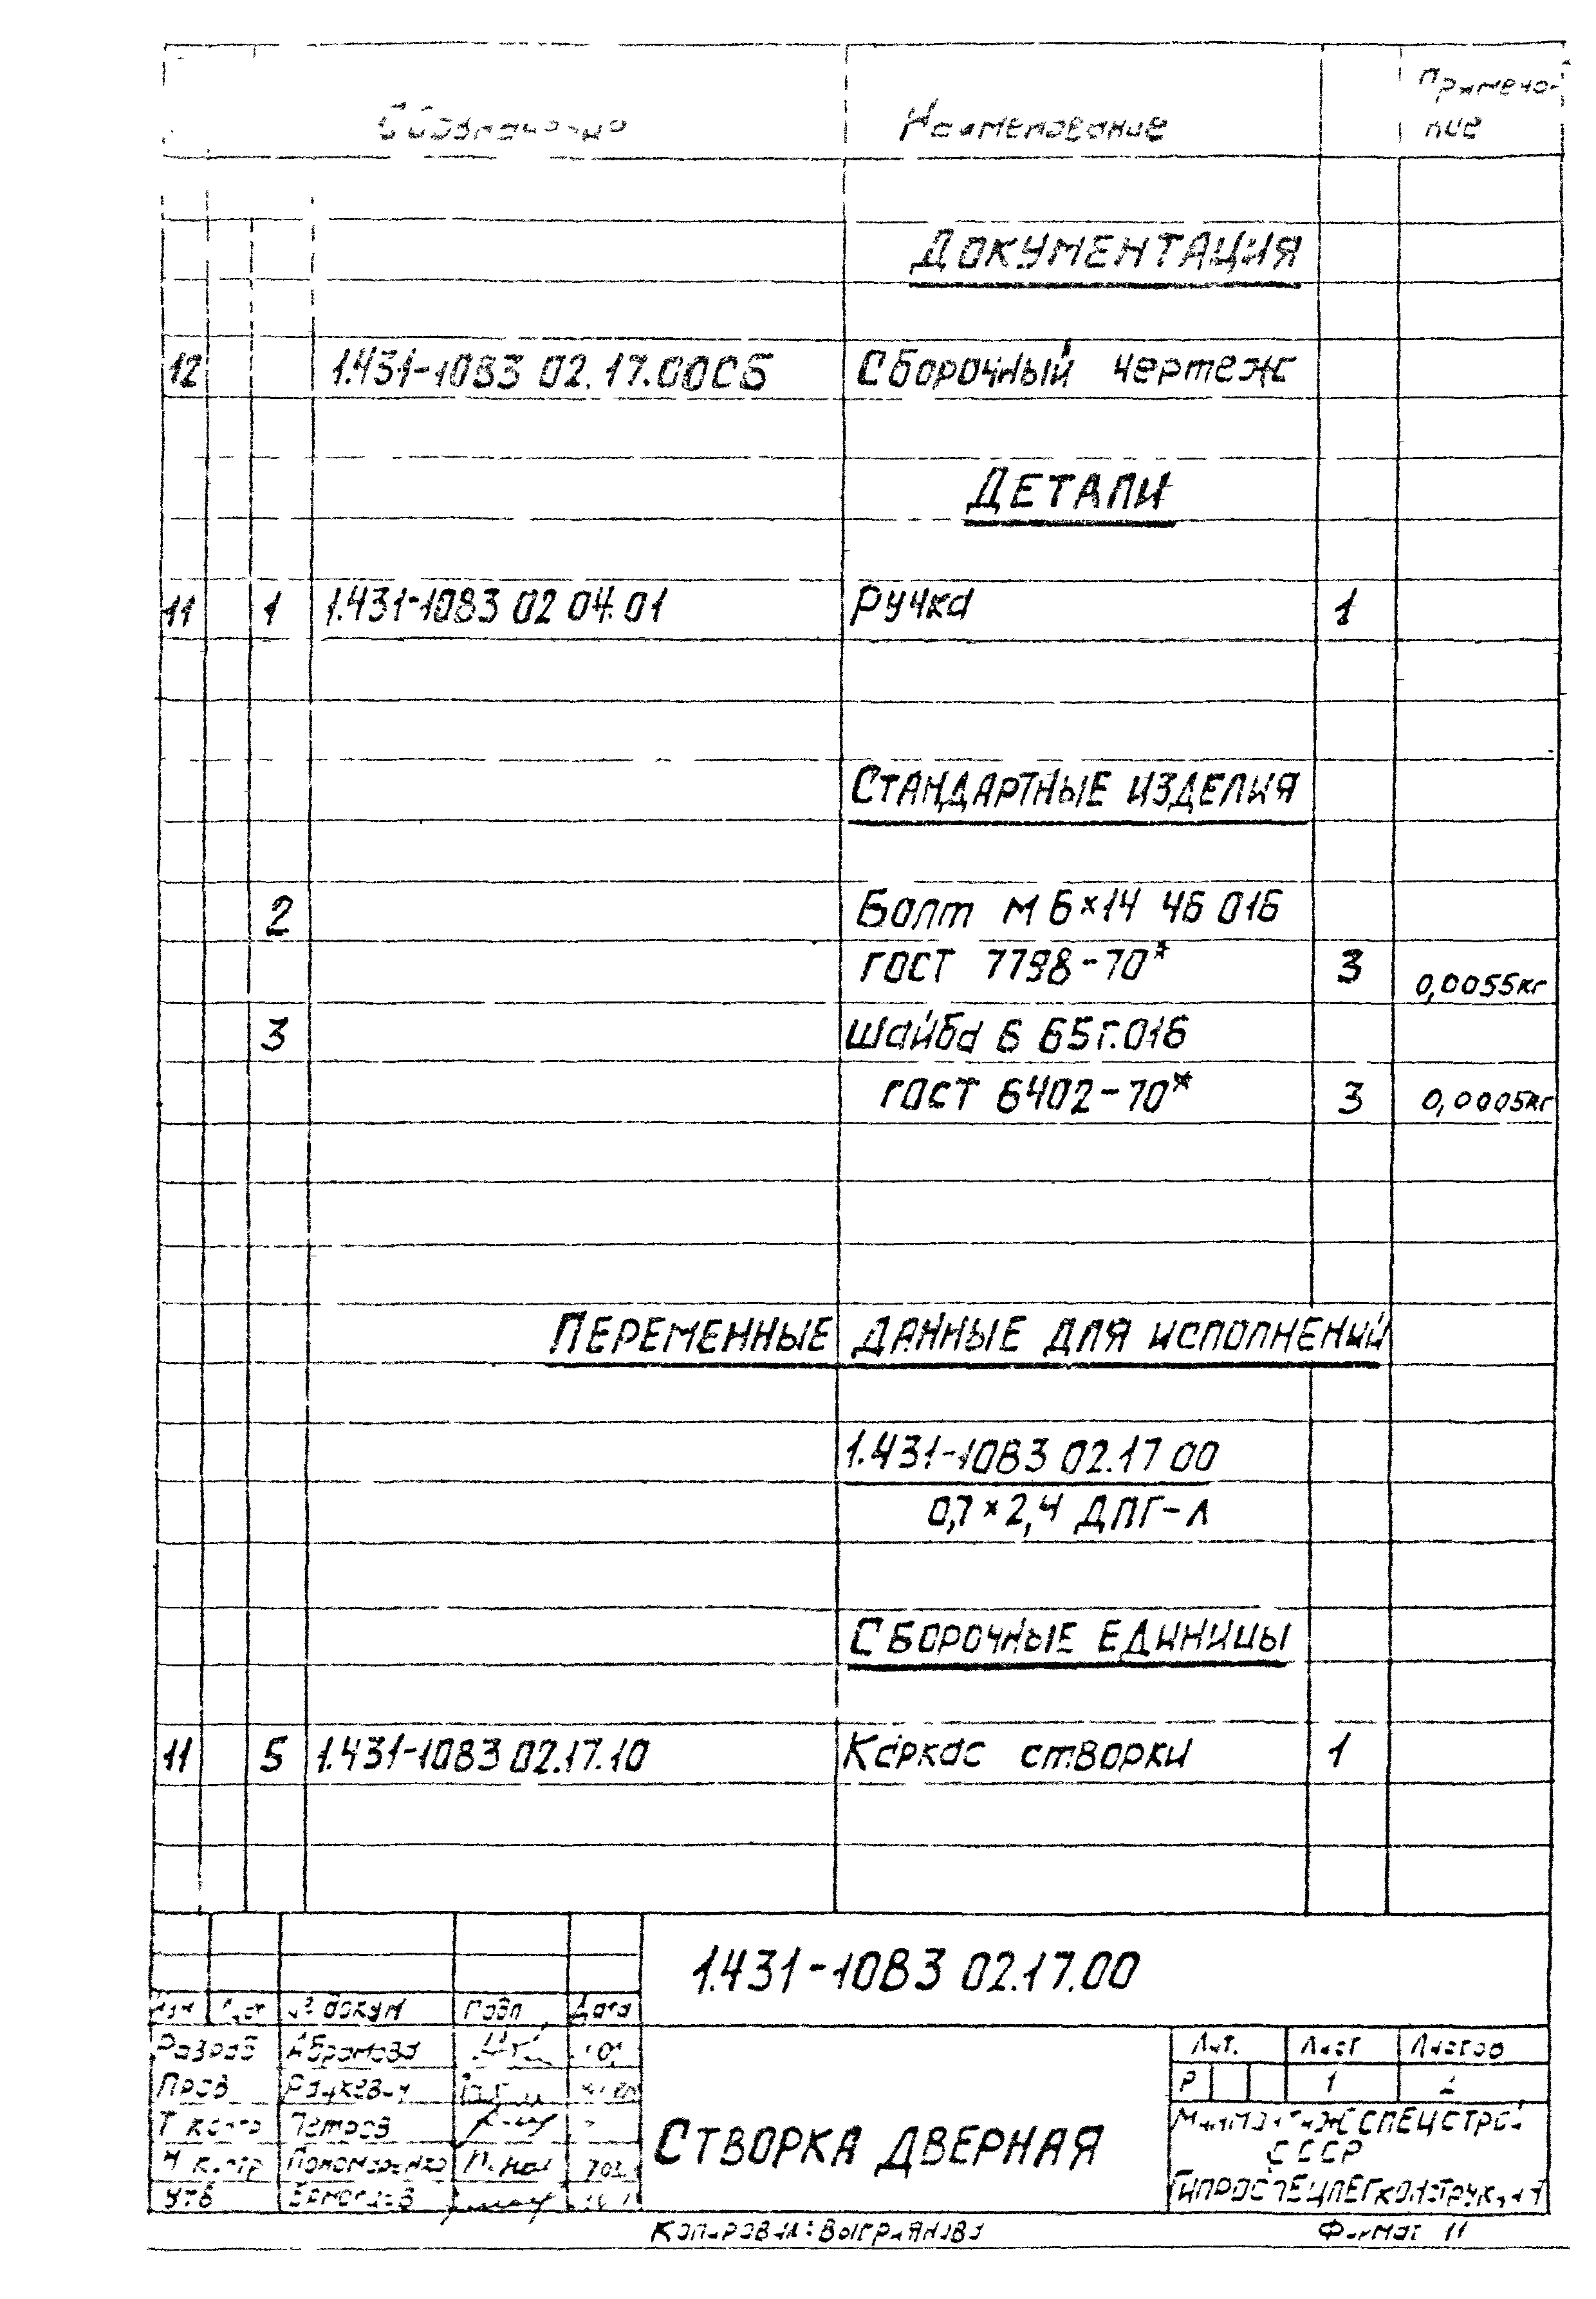 Обозначение Наименование Примеча-
ние
ДОКУМЕНТАЦИЯ
12 1.431-1083 02.17.00СБ Сборочный чертеж
ДЕТАЛИ
11 1 1.431-1083 02 04.01 Ручка 1
СТАНДАРТНЫЕ ИЗДЕЛИЯ
2 Болт М 6×14 46 016
ГОСТ 7798-70* 3 0,0055кг
3 Шайба 6 65Г.016
ГОСТ 6402-70* 3 0,0005кг
ПЕРЕМЕННЫЕ ДАННЫЕ ДЛЯ ИСПОЛНЕНИЙ
1.431-1083 02.17 00
0,7×2,4 ДПГ-Л
СБОРОЧНЫЕ ЕДИНИЦЫ
11 5 1.431-1083 02.17.10 Каркас створки 1
1.431-1083 02.17.00
Изм Лист № докум Подп. Дата
Разраб Абрамова
Пров Рацкевич
Т контр Петров
Н контр Пономаренко
Утв
СТВОРКА ДВЕРНАЯ
Лит. Лист Листов
Р 1 2
МИНМОНТАЖСПЕЦСТРОЙ
СССР
ГИПРОСПЕЦЛЕГКОНСТРУКЦИЯ
Копировал: Формат 11